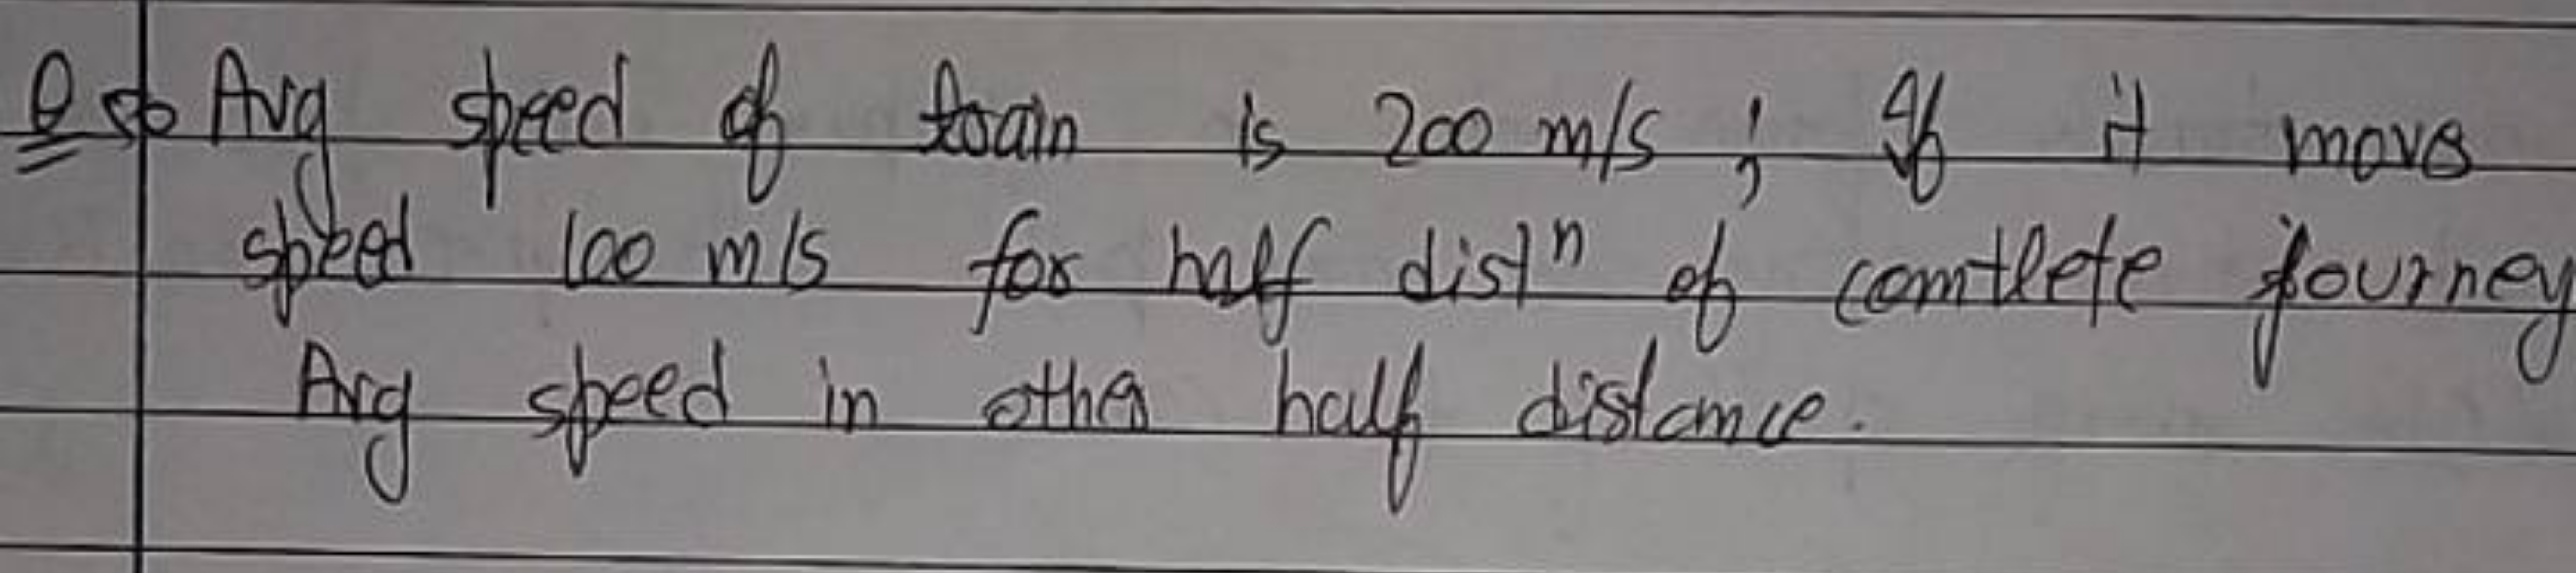 Q⇒ Avg speed of train is 200 m/s ; If it move
speed 100 m/s for half distⁿ of comtlete journey
Avg speed in other half distance.